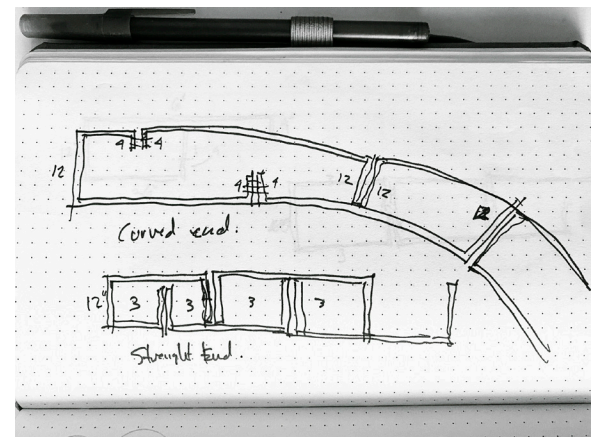 4 4
12
4 4
12 12
12
Curved end.
12" 3 3 3 3
Straight End.